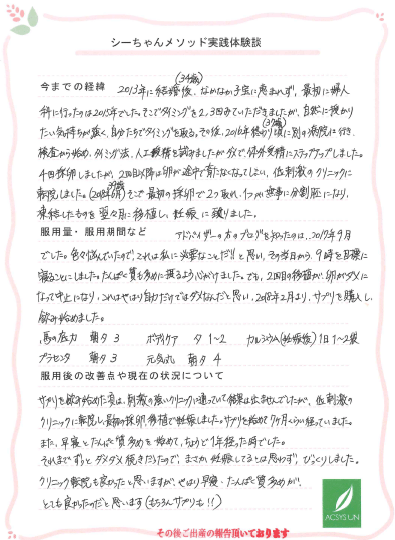 シーちゃんメソッド実践体験談
今までの経緯
(34歳)
2013年に結婚後、なかなか子宝に恵まれず、最初に婦人
科に行ったのは2015年でした。そこでタイミングを2,3回みていただきましたが、自然に授かり
(37歳)
たい気持ちが強く、自分たちでタイミングを取る。その後、2016年終わり頃に別の病院に行き、
検査から始め、タイミング法、人工授精を試みましたがダメで、体外受精にステップアップしました。
4回採卵しましたが、2回目以降は卵が途中で育たなくなってしまい、低刺激のクリニックに
転院しました。(2018年6月)そこで最初の採卵で2つ取れ、1つが無事に分割胚になり、
39歳
凍結したものを翌々月に移植し、妊娠に至りました。
服用量・服用期間など
アドバイザーの方のブログを知ったのは、2017年9月
でした。色々悩んでいたので、これは私に必要なことだ!!と思い、その当日から、9時を目標に
寝ることにしました。たんぱく質も多めに摂るよう心がけました。でも、2回目の移植が、卵がダメに
なって中止になり、これはやはり自力だけではダメなんだと思い、2018年2月より、サプリを購入し、
飲み始めました。
馬の底力 朝夕3 ボディケア 夕1~2 カルシウム(妊娠後)1日1~2袋
プラセンタ 朝夕3 元気丸 朝夕4
服用後の改善点や現在の状況について
サプリを飲み始めた頃は、刺激の強いクリニックに通っていて結果は出ませんでしたが、低刺激の
クリニックに転院し、最初の採卵、移植で妊娠しました。サプリを始めて7ヶ月くらい経っていました。
また、早寝とたんぱく質多めを始めて、ちょうど1年経った時でした。
それまでずっとダメダメ続きだったので、まさか妊娠してるとは思わず、びっくりしました。
クリニック転院も良かったと思いますが、やはり早寝・たんぱく質多めが、
とても良かったのだと思います(もちろんサプリも!!)
ACSYS UN
その後ご出産の報告頂いております